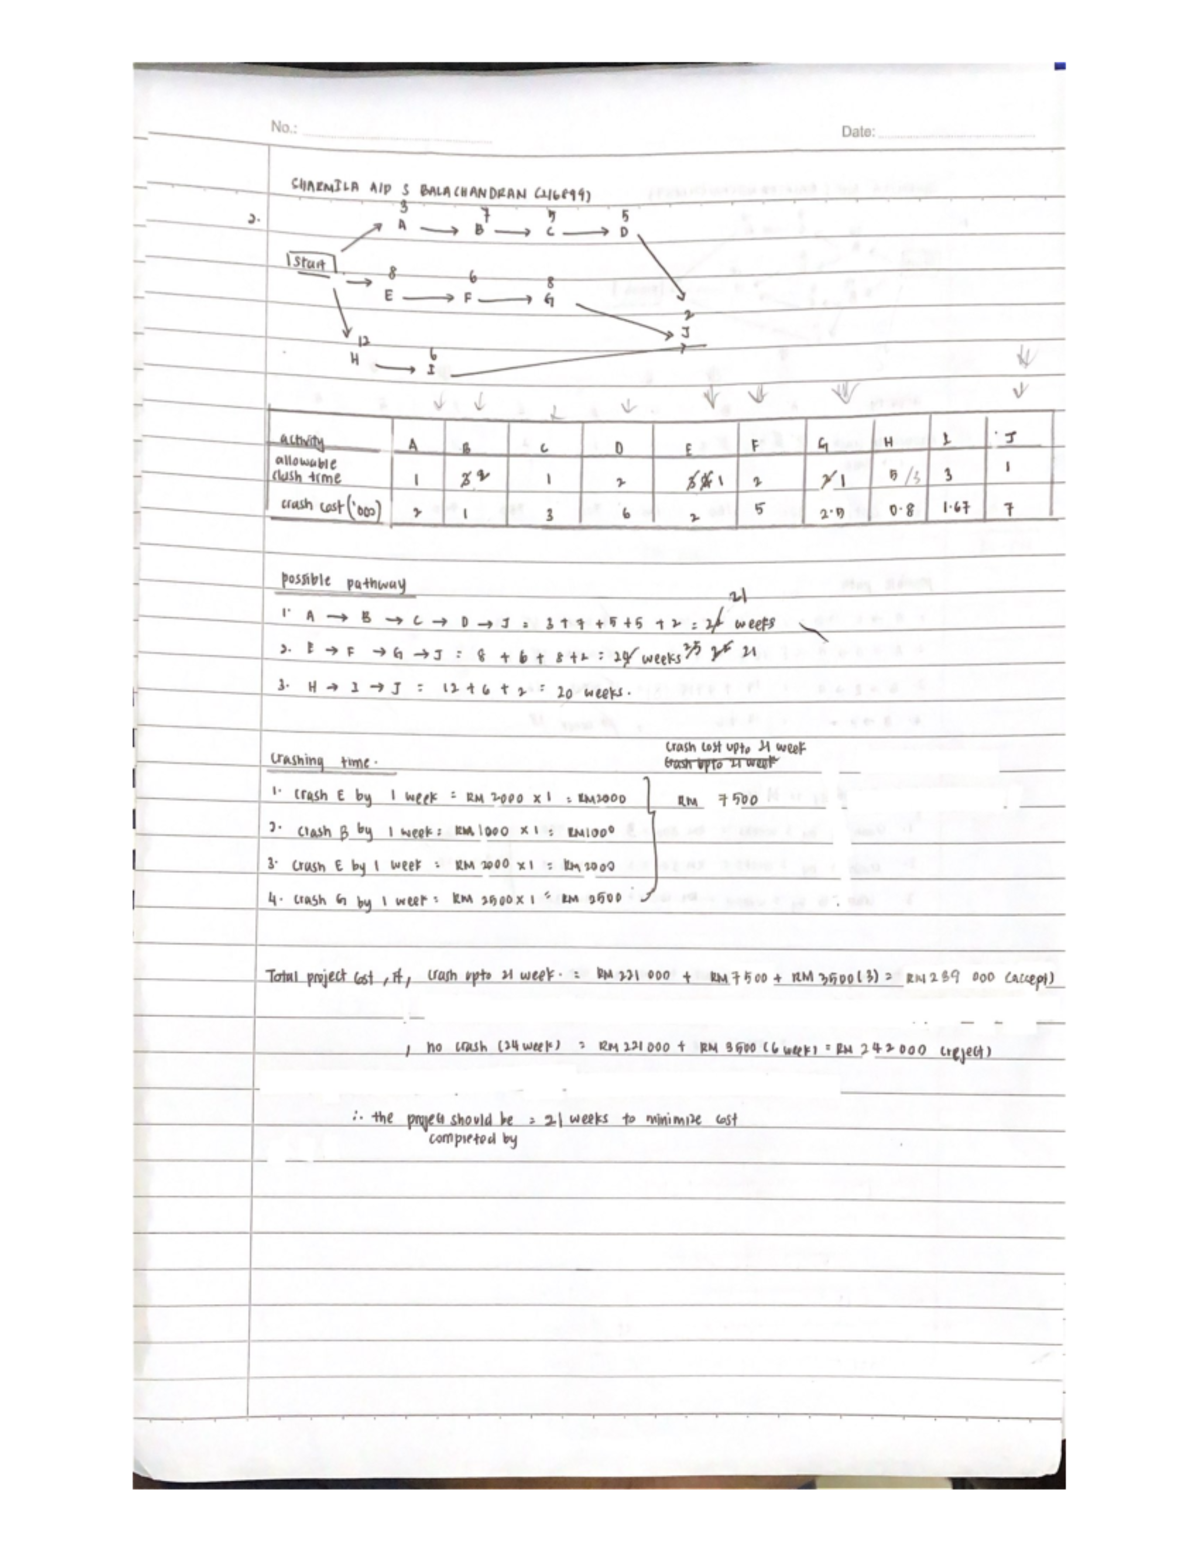 No.:
Date:
SHARMILA A/P S BALACHANDRAN
2.
3 7 5 5
A → B → C → D
Start
8 6 8
E → F → G
2
J
12 6
H → I
activity A B C D E F G H I J
allowable crash time 1 3 2 1 2 1 2 2 1 5/3 3 1
crash cost ('000) 2 1 3 6 2 5 2.5 0.8 1.67 7
possible pathway
21
1. A → B → C → D → J = 3 + 7 + 5 + 5 + 2 = weeks
2. E → F → G → J = 8 + 6 + 8 + 2 = 24 weeks 21
3. H → I → J = 12 + 6 + 2 = 20 weeks.
crash cost upto 21 week
crash upto 21 week
crashing time.
1. crash E by 1 week = RM 2000 x 1 = RM2000
RM 7500
2. crash B by 1 week = RM 1000 x 1 = RM1000
3. crash E by 1 week = RM 2000 x 1 = RM 2000
4. crash G by 1 week = RM 2500 x 1 = RM 2500
Total project cost, if, crash upto 21 week. = RM 221 000 + RM 7500 + RM 3500(3) = RM 239 000 (accept)
, no crash (24 week) = RM 221000 + RM 3500 (6 week) = RM 242000 (reject)
∴ the project should be = 21 weeks to minimize cost
completed by